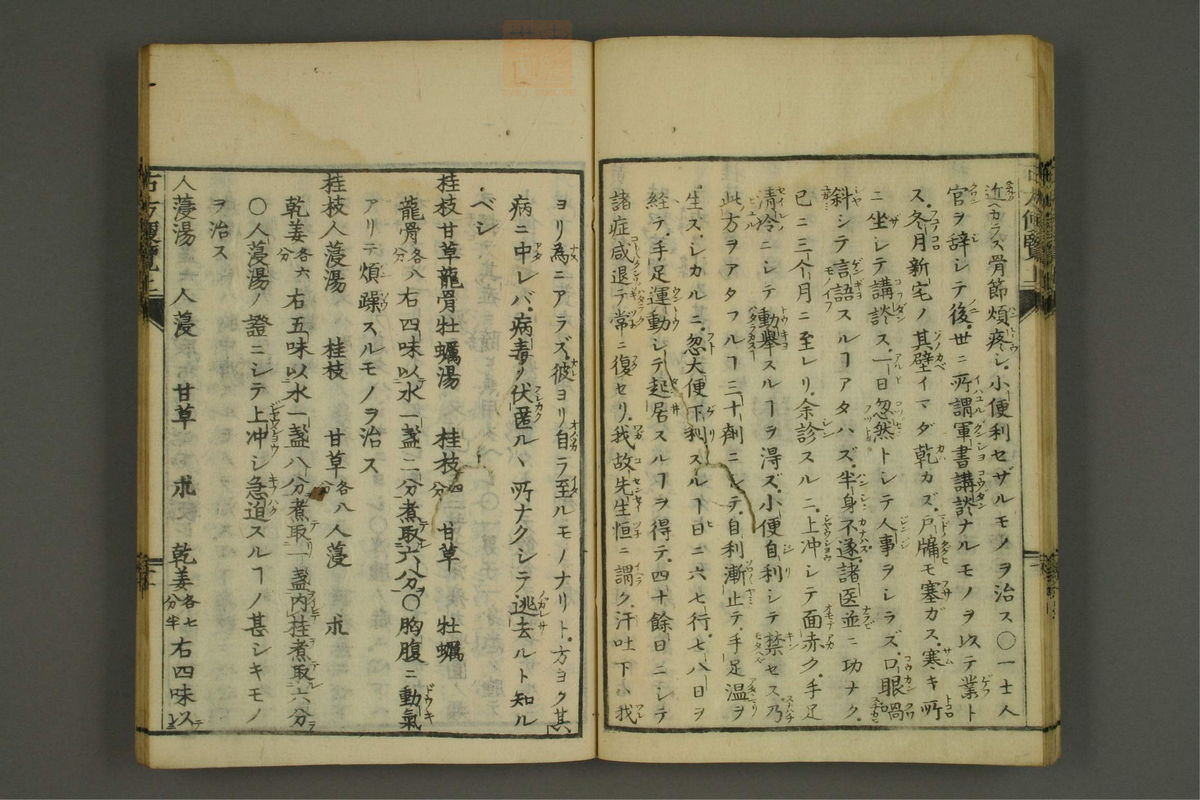 近ヅカラズ骨節煩疼シ。小便利セザルモノヲ治ス〇一士人
官ヲ辞シテ後。世ニ所謂軍書講談ナルモノヲ以テ業ト
ス。冬月新宅ノ其壁イマダ乾カズ。戸牖モ塞ガス。寒キ所
ニ坐シテ講談ス。一日忽然トシテ人事ヲシラズ。口眼喎
斜シテ言語スルヿアタハズ。半身不遂。諸医並ニ功ナク。
已ニ三个月ニ至レリ。余診スルニ。上冲シテ面赤ク。手足
清冷ニシテ動挙スルヿヲ得ズ。小便自利シテ禁セス。乃
此方ヲアタフルヿ三十劑ニシテ。自利漸止テ。手足温ヲ
生ス。シカルニ。忽大便下利スルヿ日ニ六七行。七八日ヲ
経テ。手足運動シテ起居スルヿヲ得テ。四十餘日ニシテ
諸症咸退テ常ニ復セリ。我故先生恒ニ謂ク。汗吐下ハ我
ヨリ為ニアラズ。彼ヨリ自ラ至ルモノナリト。方ヨク其
病ニ中レバ。病毒ノ伏匿ルヽ所ナクシテ逃去ルト知ル
ベシ
桂枝甘草龍骨牡蠣湯 桂枝四分 甘草 牡蠣
龍骨各八分 右四味以水一盞二分煮取六分〇胸腹ニ動氣
アリテ煩躁スルモノヲ治ス
桂枝人蓡湯 桂枝 甘草各八分 人蓡 朮
乾姜各六分 右五味以水一盞八分煮取一盞内桂煮取六分
〇人蓡湯ノ證ニシテ上冲シ急迫スルヿノ甚シキモノ
ヲ治ス
人蓡湯 人蓡 甘草 朮 乾姜各七分半 右四味